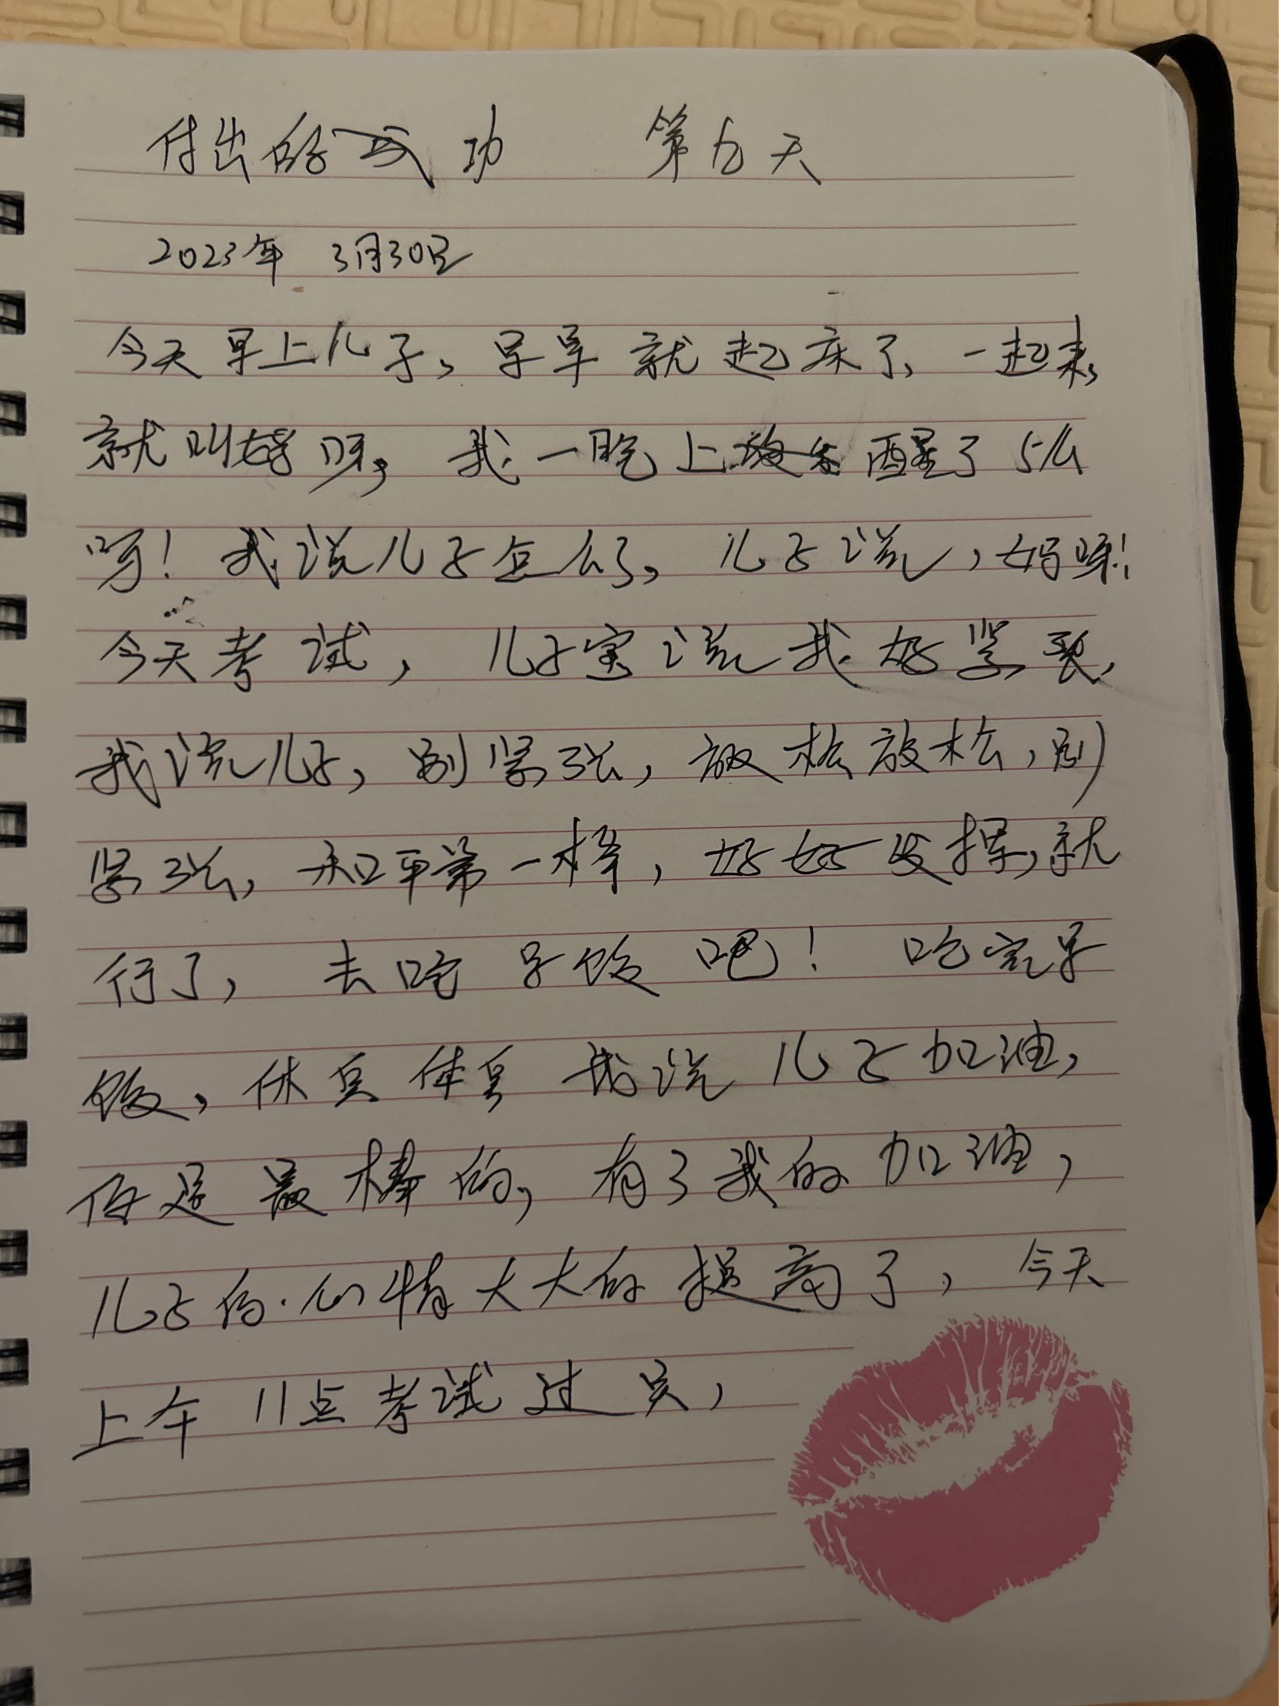 付出的成功 第九天
2023年 3月30日
今天早上儿子,早早就起床了、一起来,
就叫妈呀,我一晚上激醒了
呀!我说儿子怎么了,儿子说,妈呀!
今天考试,儿子宝说我好紧张,
我说儿子,别紧张,放松放松,别
紧张,和平第一样,好好发挥,就
行了,去吃早饭吧!吃完早
饭,休息休息我说儿子加油,
你是最棒的,有了我的加油,
儿子的心情大大的提高了,今天
上午11点考试过关,